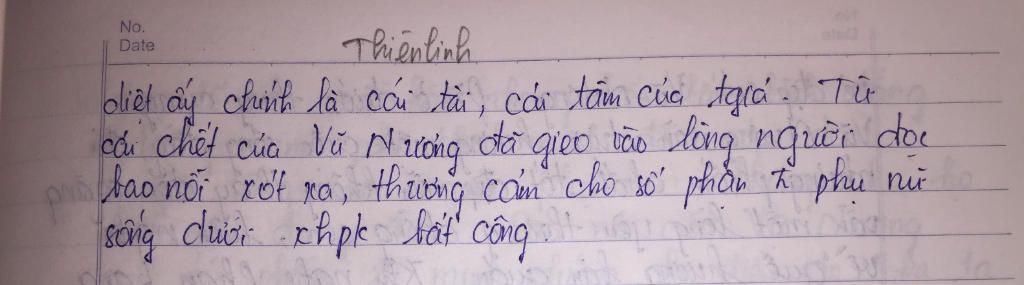 No.
Date
Thiên Linh
diệt ấy chính là cái tài, cái tâm của tgiả. Từ
cái chết của Vũ Nương đã gieo vào lòng người đọc
bao nỗi xót xa, thương cảm cho số phận phụ nữ
sống dưới xhpk bất công.